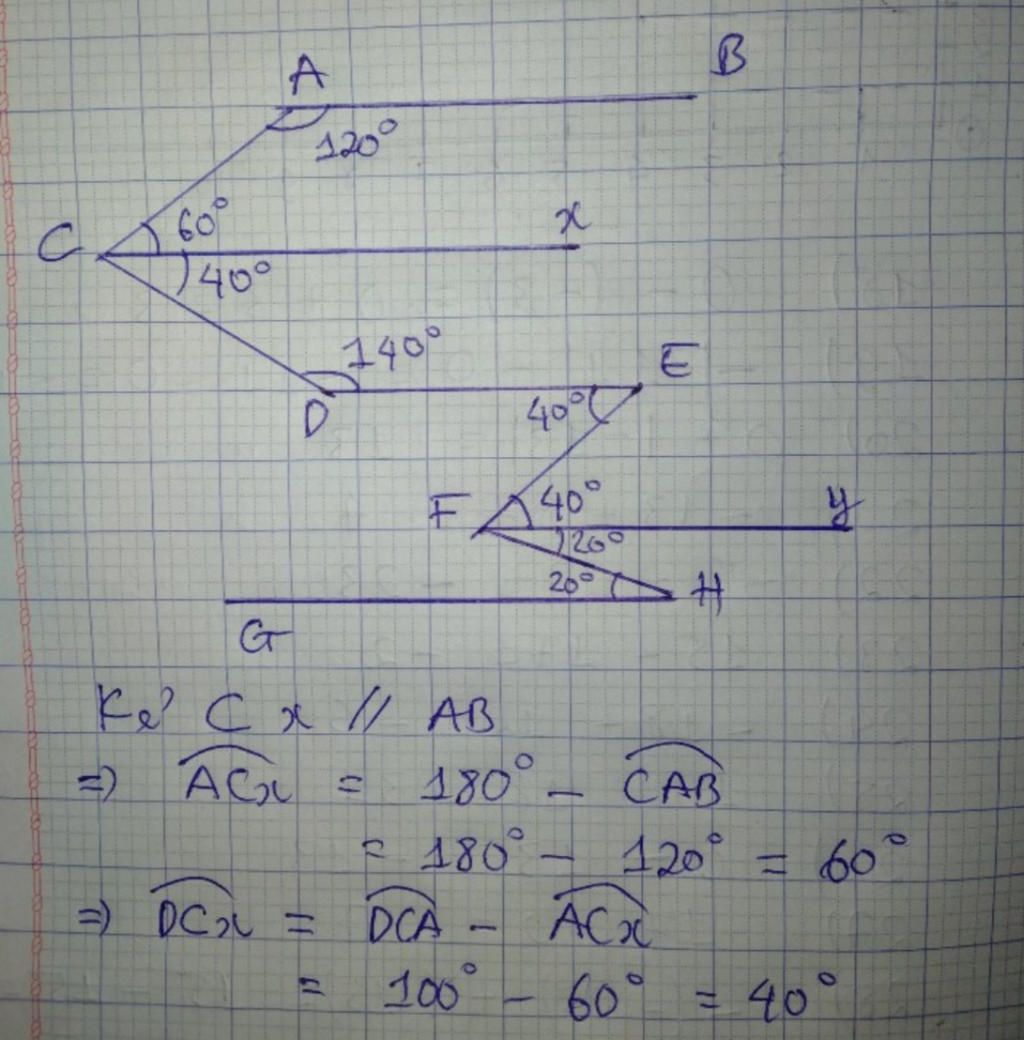 A
B
120°
60°
x
C
40°
140°
E
D
40°
F
40°
y
20°
20°
H
G
Kẻ Cx // AB
=> ACx = 180° - CAB
= 180° - 120° = 60°
=> DCx = DCA - ACx
= 100° - 60° = 40°